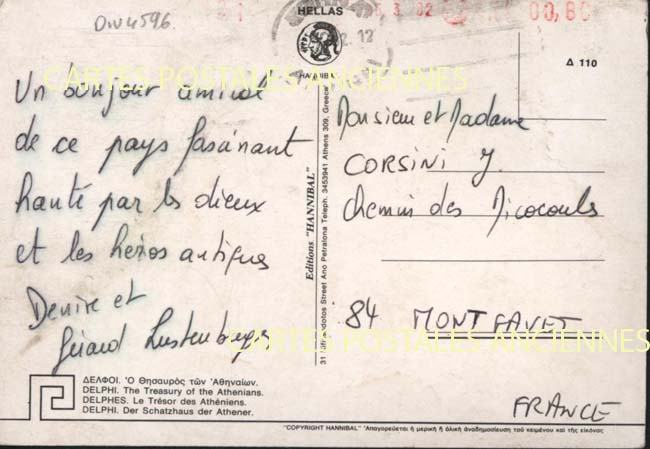 Dw4596.
HELLAS
3 02
00,80
2.12
HANNIBAL
Δ 110
CARTES POSTALES ANCIENNES
Un bonjour amical
de ce pays fascinant
hanté par les dieux
et les héros antiques
Denise et
Gérard
Editions "HANNIBAL"
Street Ano Petralona Teleph. 3453941 Athens 309, Greece
Monsieur et Madame
CORSINI J.
Chemin des Micocouls
84 MONTFAVET
FRANCE
CARTES POSTALES ANCIENNES
ΔΕΛΦΟΙ. Ὁ Θησαυρός τῶν Ἀθηναίων.
DELPHI. The Treasury of the Athenians.
DELPHES. Le Trésor des Athéniens.
DELPHI. Der Schatzhaus der Athener.
"COPYRIGHT HANNIBAL" Ἀπαγορεύεται ἡ μερική ἤ ὁλική ἀναδημοσίευση τοῦ κειμένου καί τῆς εἰκόνας